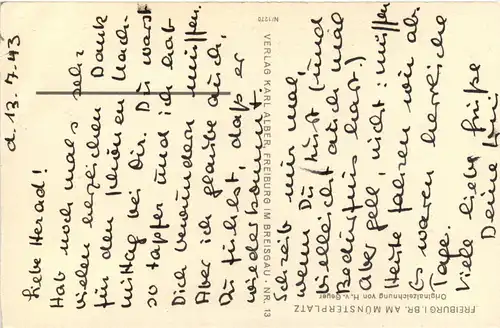 d. 13.7.43
Liebe Herad!
Hab noch mals sehr
vielen herzlichen Dank
für den schönen Nach-
mittag bei Dir. Du warst
so tapfer und ich hab
Dich bewundern müssen.
Aber ich glaube auch,
Du fühlst, daß er
wiederkommt.
Schreib mir mal
wenn Du Lust (und
vielleicht auch mal
Bedürfnis hast)
Aber gell, nicht: müssen
Heute fahren wir ab.
Es waren herrliche
Tage.
Viele liebe Grüße
Deine
N/1270
VERLAG KARL ALBER, FREIBURG IM BREISGAU · NR. 13
FREIBURG I. BR. AM MÜNSTERPLATZ
Originalzeichnung von H. v. Geyer